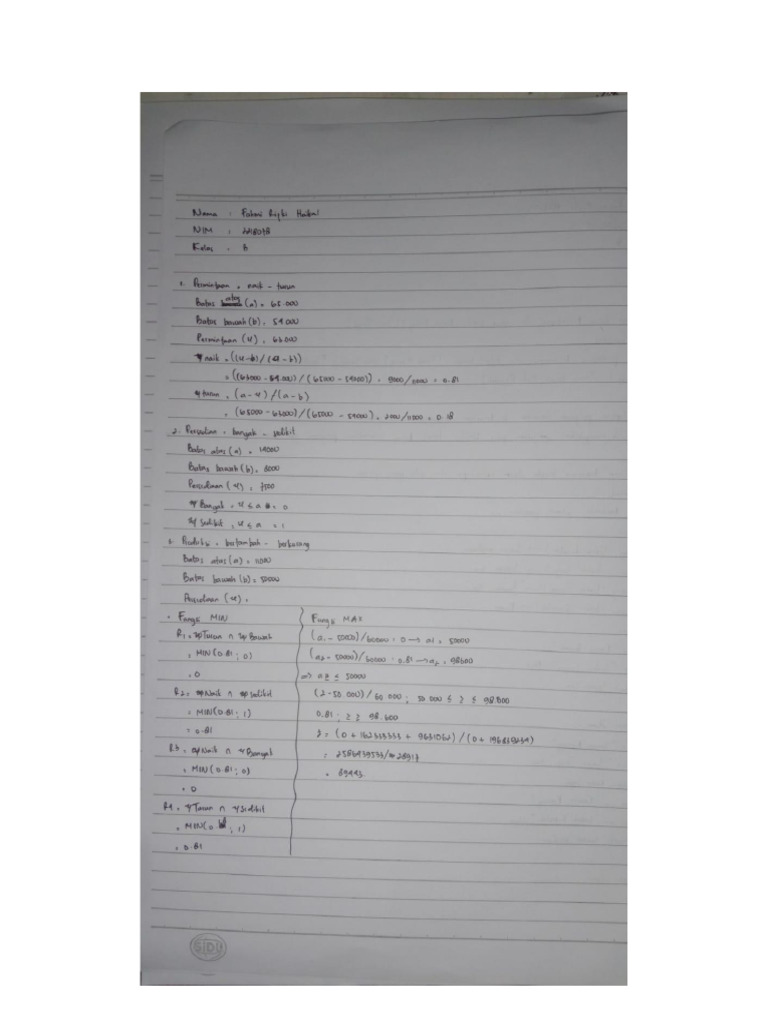 Nama : Fahmi Rizki Haikal
NIM :
Kelas :
1. Permintaan = naik - turun
Batas atas (a) = 65.000
Batas bawah (b) = 54000
Permintaan (x) = 63000
ψ naik = ((x-b)/(a-b)
= ((63000 - 54.000)/(65000 - 54000)) = 9000/11000 = 0.81
ψ turun = (a-x)/(a-b)
= (65000 - 63000)/(65000 - 54000) = 2000/11000 = 0.18
2. Persediaan = banyak - sedikit
Batas atas (a) = 14000
Batas bawah (b) = 8000
Persediaan (x) = 7500
ψ Banyak = x ≤ a = 0
ψ Sedikit = x ≤ a = 1
3. Produksi = bertambah - berkurang
Batas atas (a) =
Batas bawah (b) = 50000
Persediaan (x) =
• Fungsi MIN
R1 = ψ Turun ∩ ψ
= MIN(0.81 ; 0)
= 0
R2 = ψ Naik ∩ ψ sedikit
= MIN(0.81 ; 1)
= 0.81
R3 = ψ Naik ∩ ψ Banyak
= MIN(0.81 ; 0)
= 0
R4 = ψ Turun ∩ ψ Sedikit
= MIN(0. ; 1)
= 0.81
Fungsi MAX
(a1 - 50000)/60000 = 0 → a1 = 50000
(a2 - 50000)/60000 = 0.81 → a2 = 98600
≤ 50000
(z - 50.000)/60.000 ; 50.000 ≤ z ≤ 98.600
0.81 ; z ≥ 98.600
z = (0 + + )/(0 + )
=
= 89443
SIDU